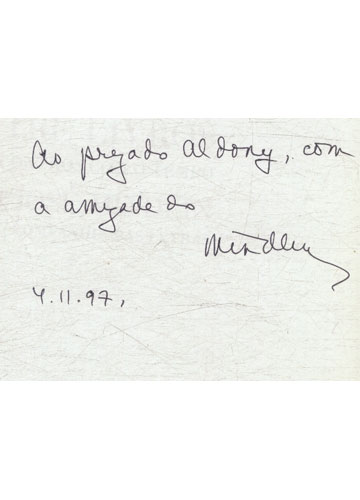 Ao prezado Aldony, com
a amizade do
Mindlin
4.11.97,